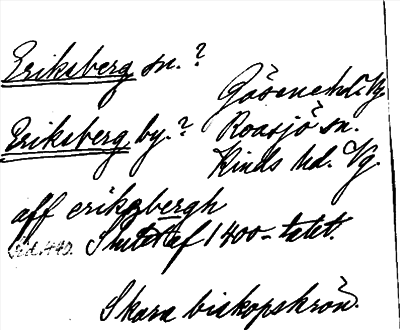 Eriksberg sn.?
Gäsene hd. Vg.
Eriksberg by.? Roasjö sn.
Kinds hd. Vg.
aff eriksbergh
Slutet af 1400-talet.
Skara biskopskrön.